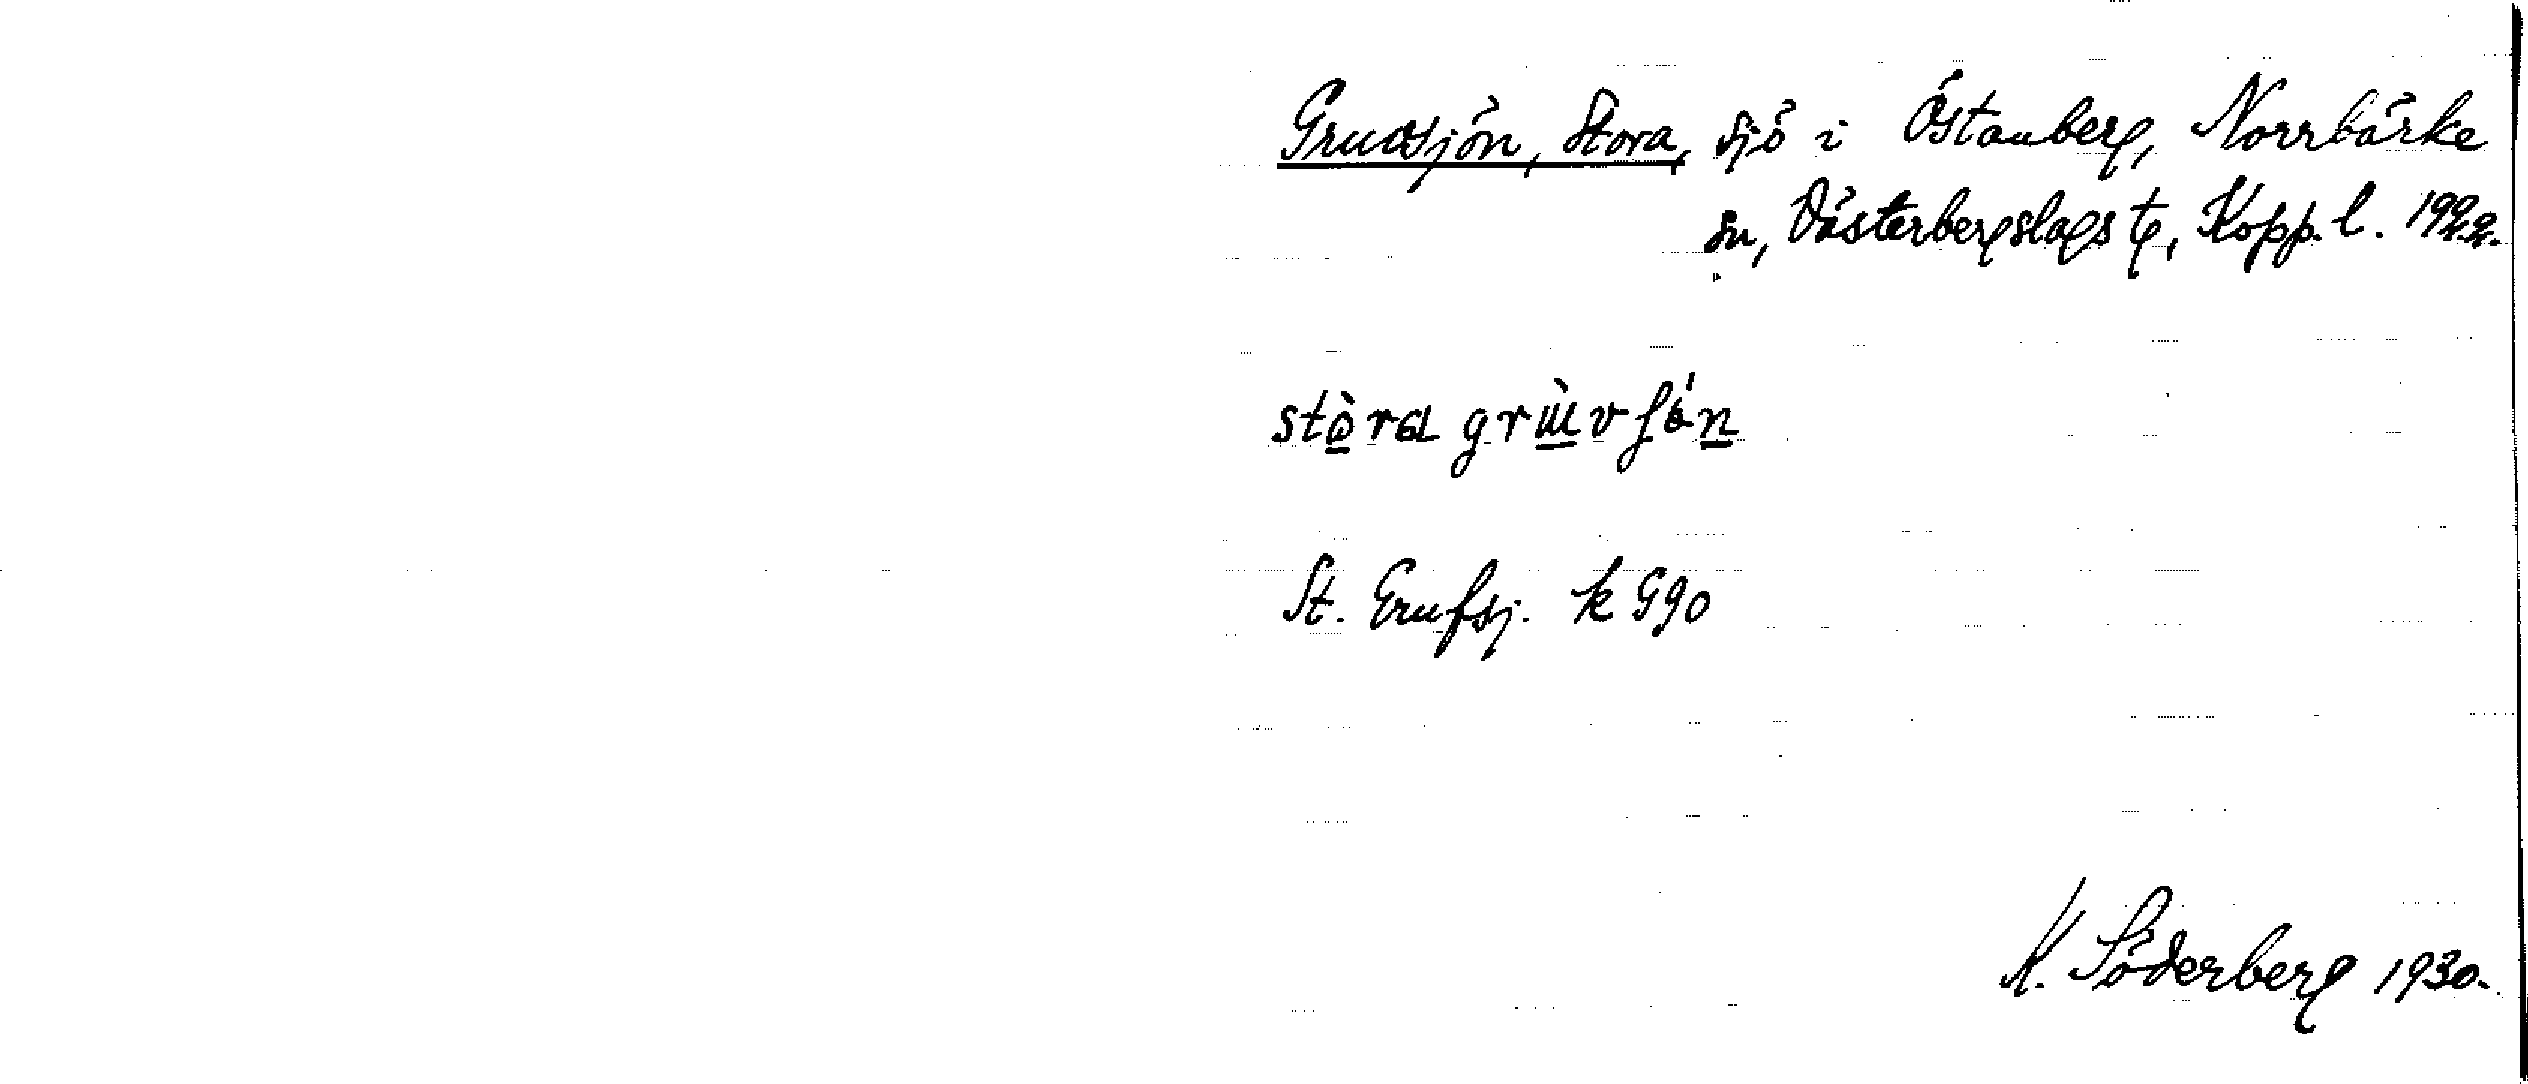 Gruvsjön, Stora, sjö i Östanberg, Norrbärke
sn, Västerbergslags tg, Kopp. l. 1922.
stò̱ra grɯ̱̀vʃə́ṉ
St. Grufsj. k G90
K. Söderberg 1930.